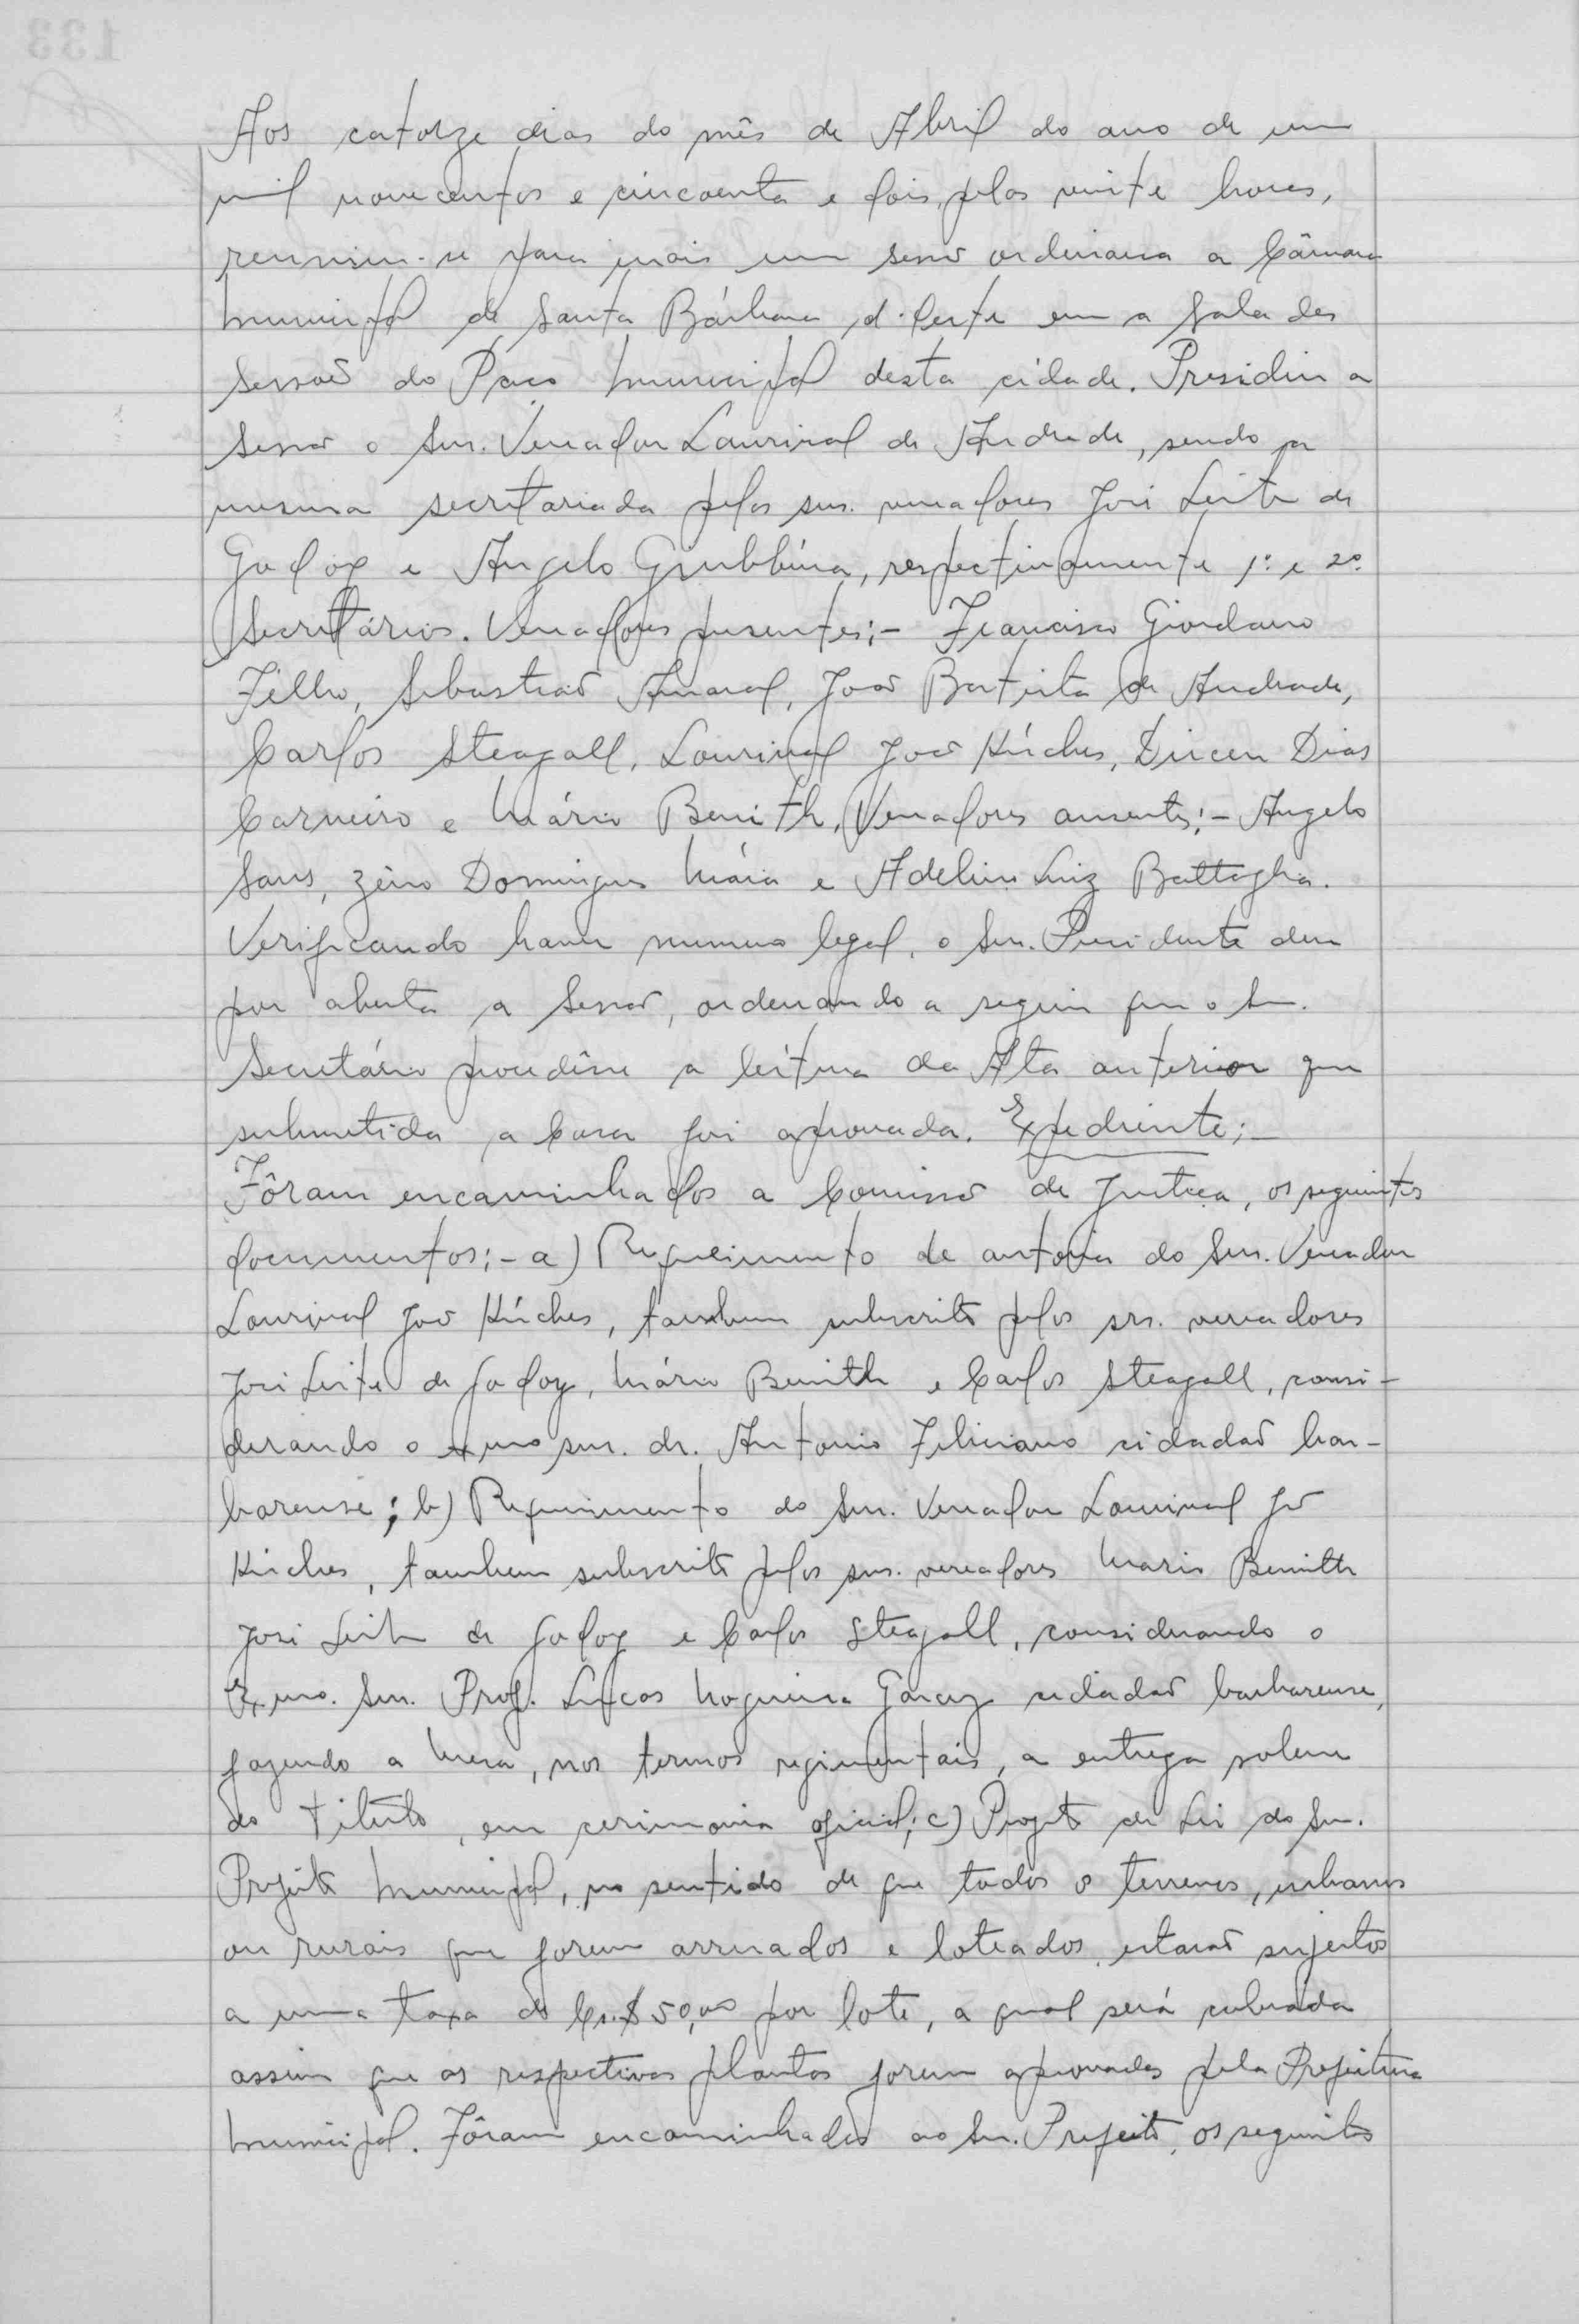 Aos catorze dias do mês de Abril do ano de um
mil novecentos e cincoenta e dois, pelas vinte horas,
reuniu-se para mais uma sessão ordinaria a Câmara
Municipal de Santa Bárbara d'Oeste em a Sala das
Sessões do Paço Municipal desta cidade. Presidiu a
Sessão o Snr. Vereador Lourival de Andrade, sendo a
mesma secretariada pelos snrs. vereadores José Leite de
Godoy e Angelo Giubbina, respectivamente 1º e 2º
Secretários. Vereadores presentes:- Francisco Giordano
Filho, Sebastião Amaral, João Batista de Andrade,
Carlos Steagall, Lourival João Kúches, Dirceu Dias
Carneiro e Mário Benith. Vereadores ausentes:- Angelo
Sans, Zêno Domingues Máia e Adelino Luiz Battaglia.
Verificando haver numero legal, o Snr. Presidente deu
por aberta a Sessão, ordenando a seguir que o Sr.
Secretário procedêsse a leitura da Ata anterior que
submetida a Casa foi aprovada. Expediente:-
Fôram encaminhados a Comissão de Justiça, os seguintes
documentos:- a) Requerimento de autoria do Snr. Vereador
Lourival João Kúches, tambem subscrito pelos srs. vereadores
José Leite de Godoy, Mário Benith e Carlos Steagall, consi-
derando o exmo snr. dr. Antonio Feliciano cidadão bar-
barense; b) Requerimento do Snr. Vereador Lourival Jo
Kúches, tambem subscrito pelos snrs. vereadores Mario Benith
José Leite de Godoy e Carlos Steagall, considerando o
Exmo. Snr. Prof. Lucas Nogueira Garcez cidadão barbarense,
fazendo a Mesa, nos termos regimentais, a entrega solene
do titulo, em cerimonia oficial; c) Projeto de Lei do Snr.
Prefeito Municipal, no sentido de que todos os terrenos, urbanos
ou rurais que forem arruados e loteados, estarão sujeitos
a uma taxa de Cr.$ 50,00 por lote, a qual será cobrada
assim que as respectivas plantas forem aprovadas pela Prefeitura
Municipal. Fôram encaminhados ao Snr. Prefeito, os seguintes